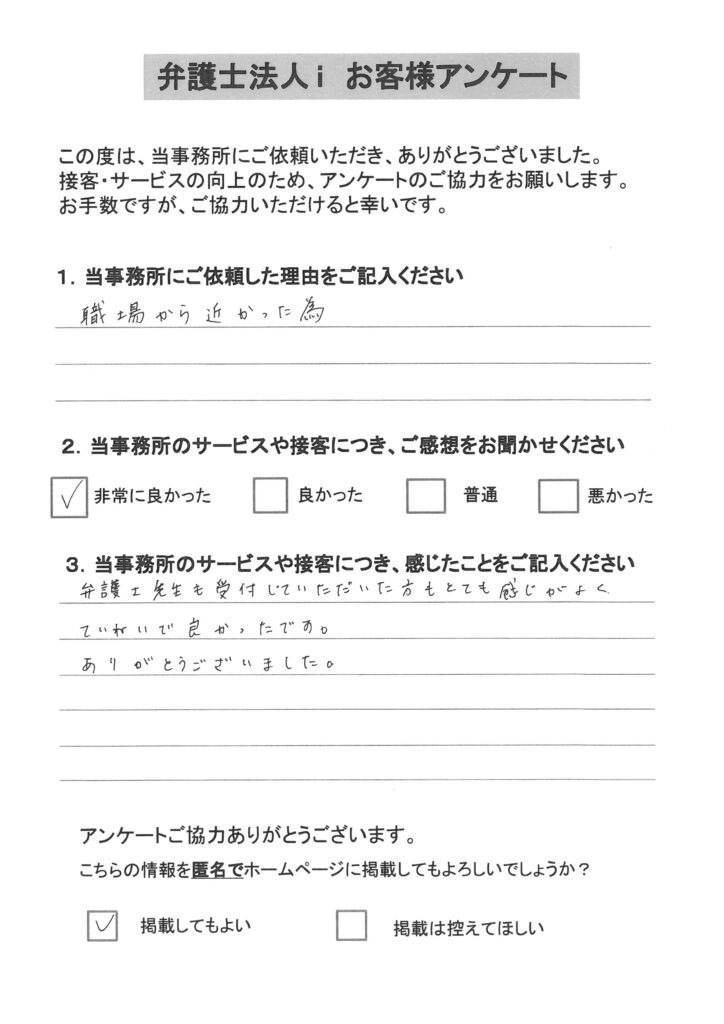 弁護士法人i お客様アンケート
この度は、当事務所にご依頼いただき、ありがとうございました。
接客・サービスの向上のため、アンケートのご協力をお願いします。
お手数ですが、ご協力いただけると幸いです。
1. 当事務所にご依頼した理由をご記入ください
職場から近かった為
2. 当事務所のサービスや接客につき、ご感想をお聞かせください
非常に良かった 良かった 普通 悪かった
3. 当事務所のサービスや接客につき、感じたことをご記入ください
弁護士先生も受付していただいた方もとても感じがよく
ていねいで良かったです。
ありがとうございました。
アンケートご協力ありがとうございます。
こちらの情報を匿名でホームページに掲載してもよろしいでしょうか？
掲載してもよい 掲載は控えてほしい